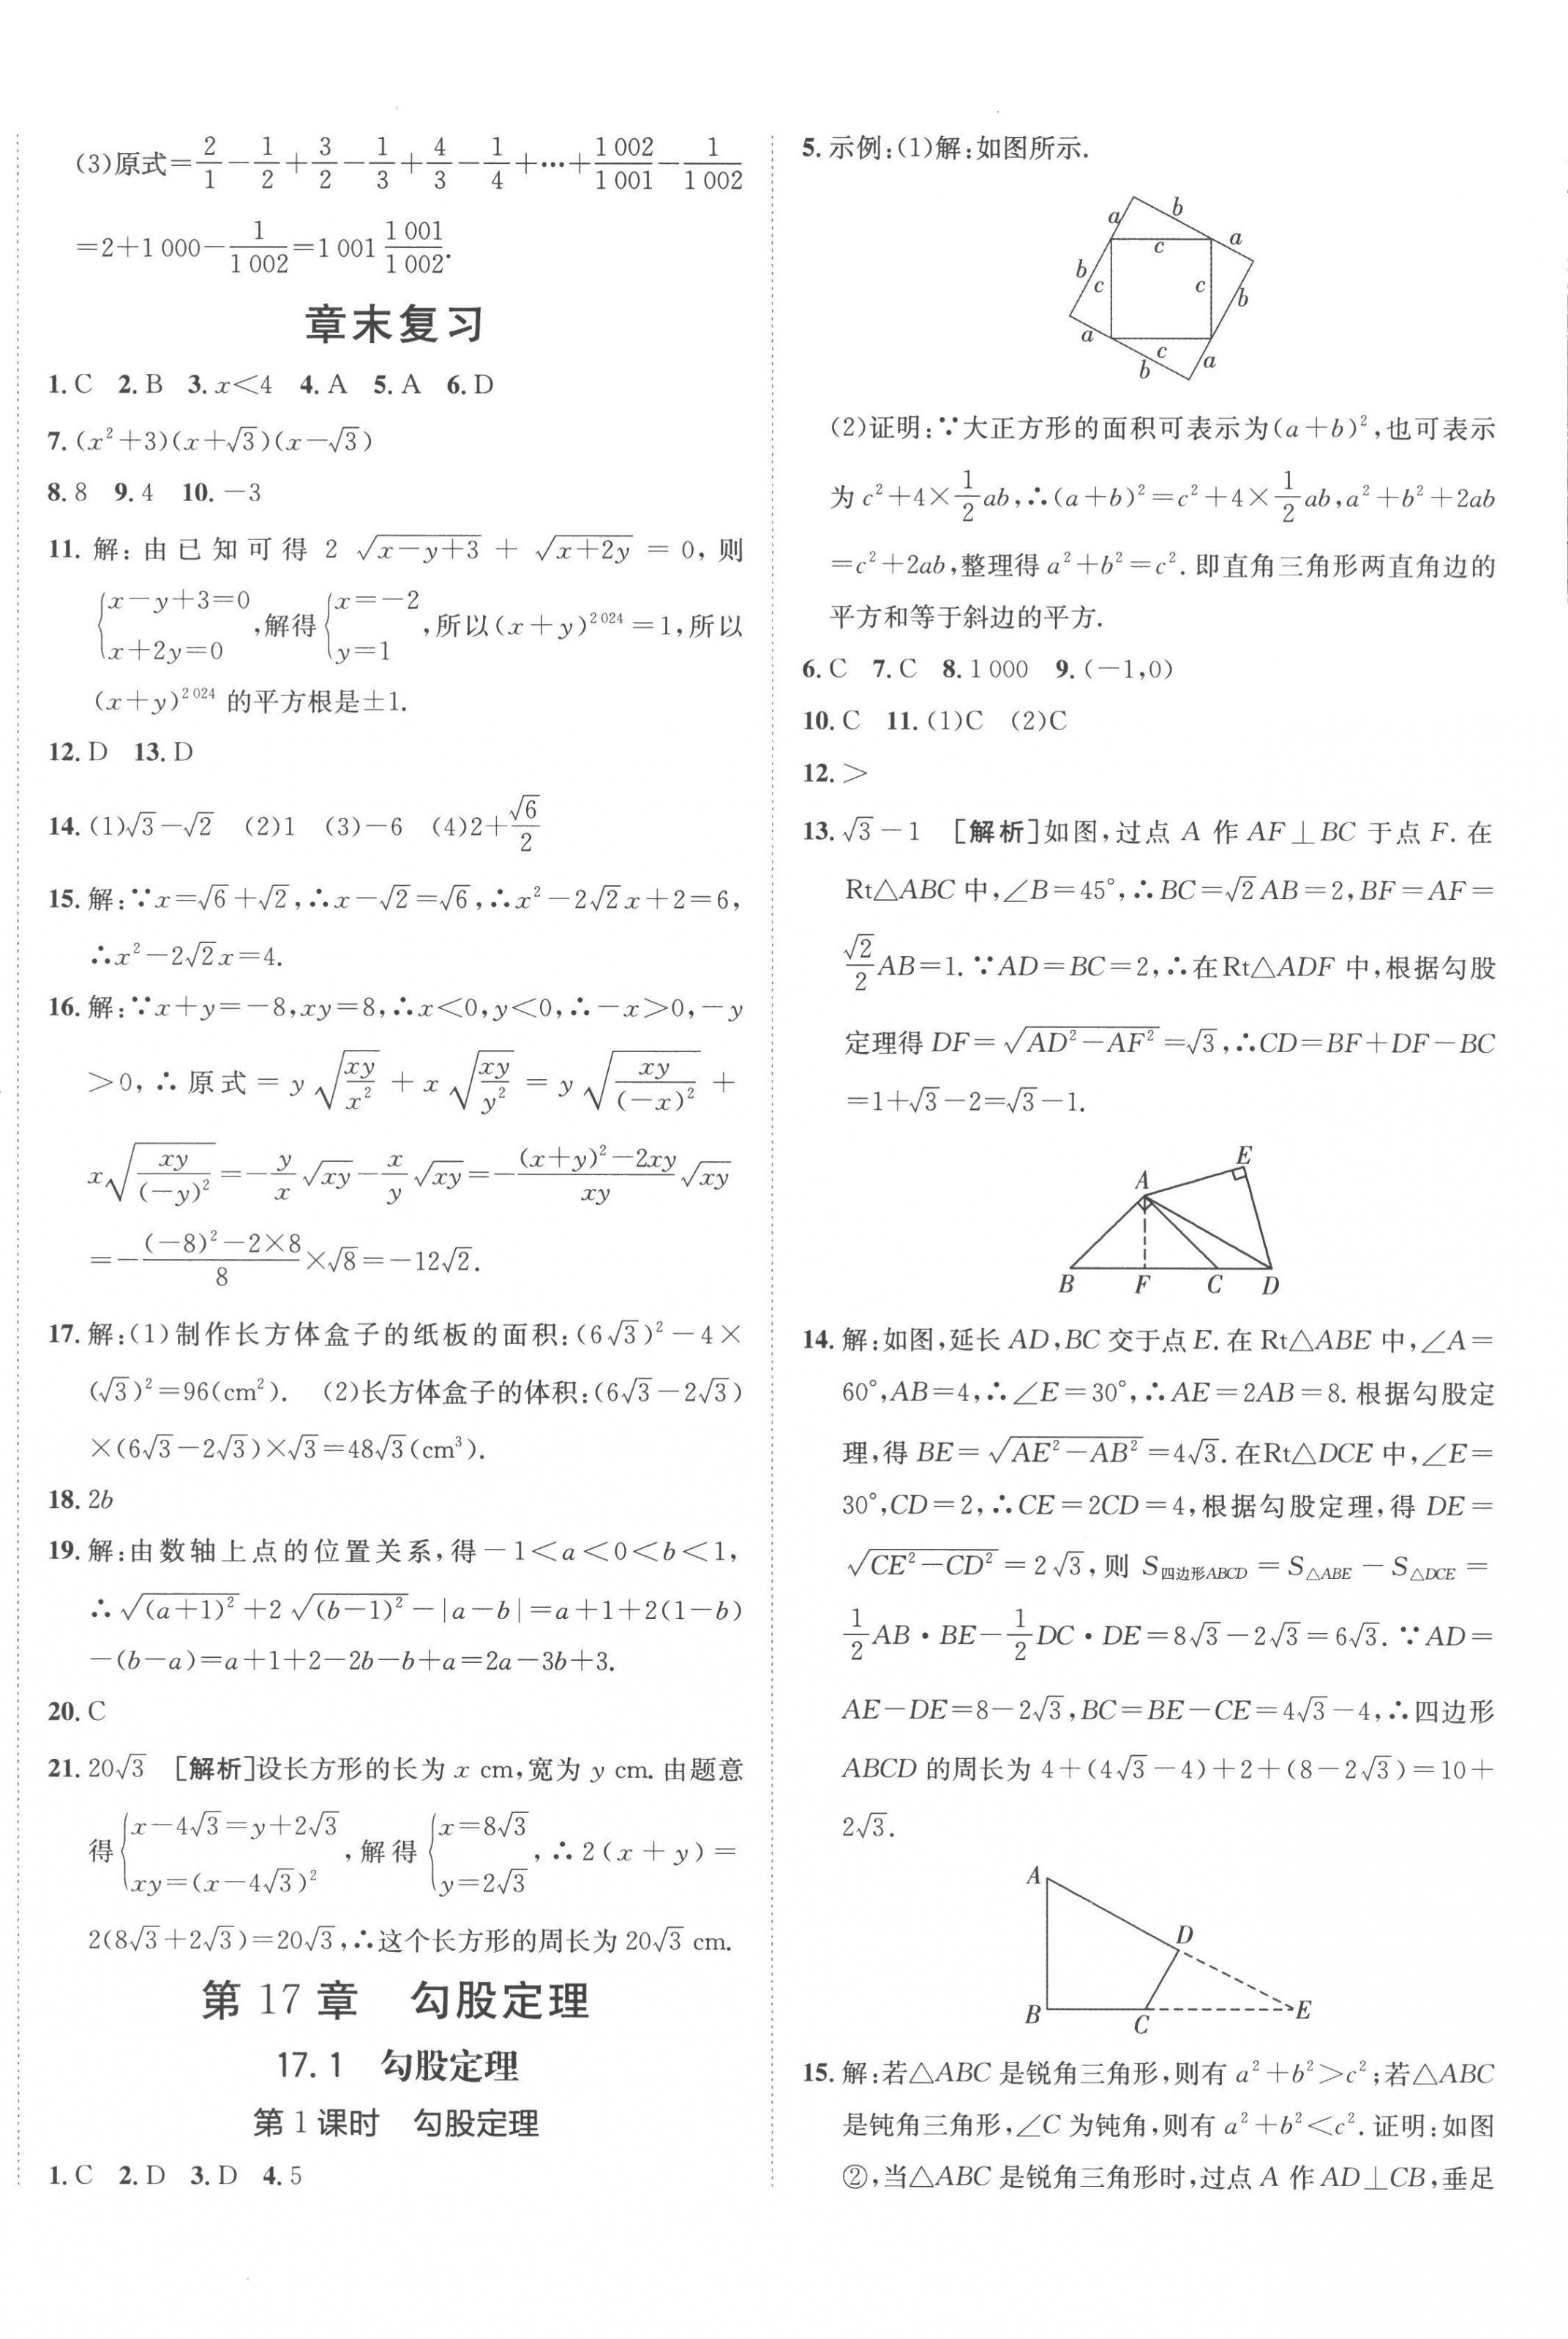 (3)原式=2/1−1/2+3/2−1/3+4/3−1/4+⋯+1 002/1 001−1/1 002
=2+1 000−1/1 002=1 001 1 001/1 002.
章末复习
1. C 2. B 3. x<4 4. A 5. A 6. D
7. (x²+3)(x+√3)(x−√3)
8. 8 9. 4 10. −3
11. 解:由已知可得 2√(x−y+3) + √(x+2y) = 0,则
{x−y+3=0 x+2y=0,解得{x=−2 y=1,所以(x+y)²⁰²⁴=1,所以
(x+y)²⁰²⁴ 的平方根是±1.
12. D 13. D
14. (1)√3−√2 (2)1 (3)−6 (4)2+√6/2
15. 解:∵x=√6+√2,∴x−√2=√6,∴x²−2√2x+2=6,
∴x²−2√2x=4.
16. 解:∵x+y=−8,xy=8,∴x<0,y<0,∴−x>0,−y
>0,∴原式=y√(xy/x²)+x√(xy/y²)=y√(xy/(−x)²)+
x√(xy/(−y)²)=−y/x√xy−x/y√xy=−((x+y)²−2xy)/xy √xy
=−((−8)²−2×8)/8×√8=−12√2.
17. 解:(1)制作长方体盒子的纸板的面积:(6√3)²−4×
(√3)²=96(cm²). (2)长方体盒子的体积:(6√3−2√3)
×(6√3−2√3)×√3=48√3(cm³).
18. 2b
19. 解:由数轴上点的位置关系,得−1<a<0<b<1,
∴√((a+1)²)+2√((b−1)²)−|a−b|=a+1+2(1−b)
−(b−a)=a+1+2−2b−b+a=2a−3b+3.
20. C
21. 20√3 [解析]设长方形的长为 x cm,宽为 y cm. 由题意
得{x−4√3=y+2√3 xy=(x−4√3)²,解得{x=8√3 y=2√3,∴2(x+y)=
2(8√3+2√3)=20√3,∴这个长方形的周长为 20√3 cm.
第 17 章 勾股定理
17. 1 勾股定理
第 1 课时 勾股定理
1. C 2. D 3. D 4. 5
5. 示例:(1)解:如图所示.
a b
c a
b c c b
a c a
b
(2)证明:∵大正方形的面积可表示为(a+b)²,也可表示
为 c²+4×1/2ab,∴(a+b)²=c²+4×1/2ab,a²+b²+2ab
=c²+2ab,整理得 a²+b²=c². 即直角三角形两直角边的
平方和等于斜边的平方.
6. C 7. C 8. 1 000 9. (−1,0)
10. C 11. (1)C (2)C
12. >
13. √3−1 [解析]如图,过点 A 作 AF⊥BC 于点 F. 在
Rt△ABC 中,∠B=45°,∴BC=√2AB=2,BF=AF=
√2/2AB=1. ∵AD=BC=2,∴在Rt△ADF 中,根据勾股
定理得 DF=√(AD²−AF²)=√3,∴CD=BF+DF−BC
=1+√3−2=√3−1.
E
A
B F C D
14. 解:如图,延长 AD,BC 交于点 E. 在 Rt△ABE 中,∠A=
60°,AB=4,∴∠E=30°,∴AE=2AB=8. 根据勾股定
理,得 BE=√(AE²−AB²)=4√3. 在Rt△DCE 中,∠E=
30°,CD=2,∴CE=2CD=4,根据勾股定理,得 DE=
√(CE²−CD²)=2√3,则 S四边形ABCD=S△ABE−S△DCE=
1/2AB·BE−1/2DC·DE=8√3−2√3=6√3. ∵AD=
AE−DE=8−2√3,BC=BE−CE=4√3−4,∴四边形
ABCD 的周长为 4+(4√3−4)+2+(8−2√3)=10+
2√3.
A
D
B C E
15. 解:若△ABC 是锐角三角形,则有 a²+b²>c²;若△ABC
是钝角三角形,∠C 为钝角,则有 a²+b²<c². 证明:如图
②,当△ABC 是锐角三角形时,过点 A 作 AD⊥CB,垂足